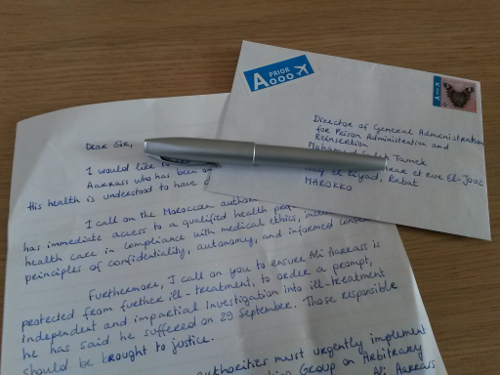 A PRIOR
Director of General Administration
for Prison Administration and
Reinsertion
Mohamed Tamek
et rue El-Jouz
Hay el Riyad, Rabat
MAROKKO
Dear Sir,
I would like to
Aarrass who has been on
His health is understood to have
I call on the Moroccan
has immediate access to a qualified health
health care in compliance with medical ethics,
principles of confidentiality, autonomy, and informed consent.
Furthermore, I call on you to ensure Ali Aarrass is
protected from further ill-treatment, to order a prompt,
independent and impartial investigation into ill-treatment
he has said he suffered on 29 September. Those responsible
should be brought to justice.
authorities must urgently implement
Group on Arbitrary
Ali Aarrass